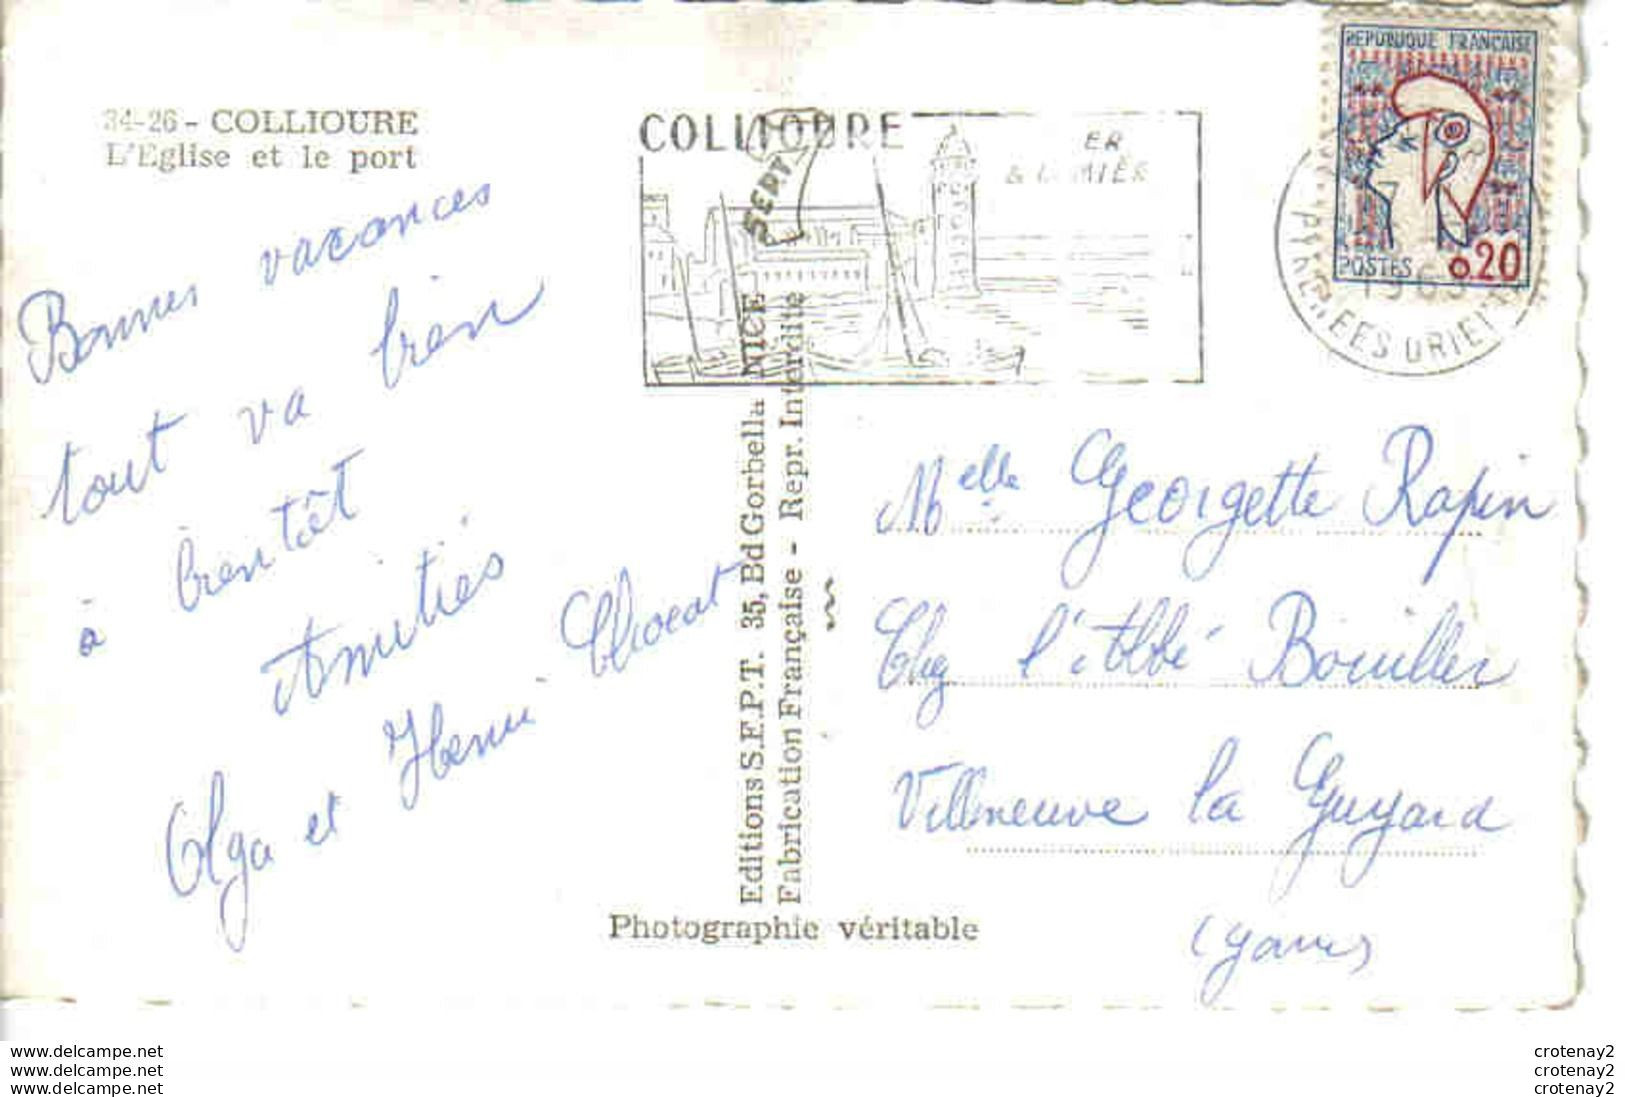 34-26 - COLLIOURE
L'Eglise et le port
Bonnes vacances
tout va bien
à bientôt
Amitiés
Olga et Henri
COLLIOURE
REPUBLIQUE FRANÇAISE
POSTES 0.20
PYRENEES ORIENT
Editions S.E.P.T. 35, Bd Gorbella NICE
Fabrication Française - Repr. Interdite
SEPT
Photographie véritable
Melle Georgette Rapin
Chez l'Abbé Bouiller
Villeneuve la Guyard
(Yonne)
www.delcampe.net
www.delcampe.net
www.delcampe.net
crotenay2
crotenay2
crotenay2